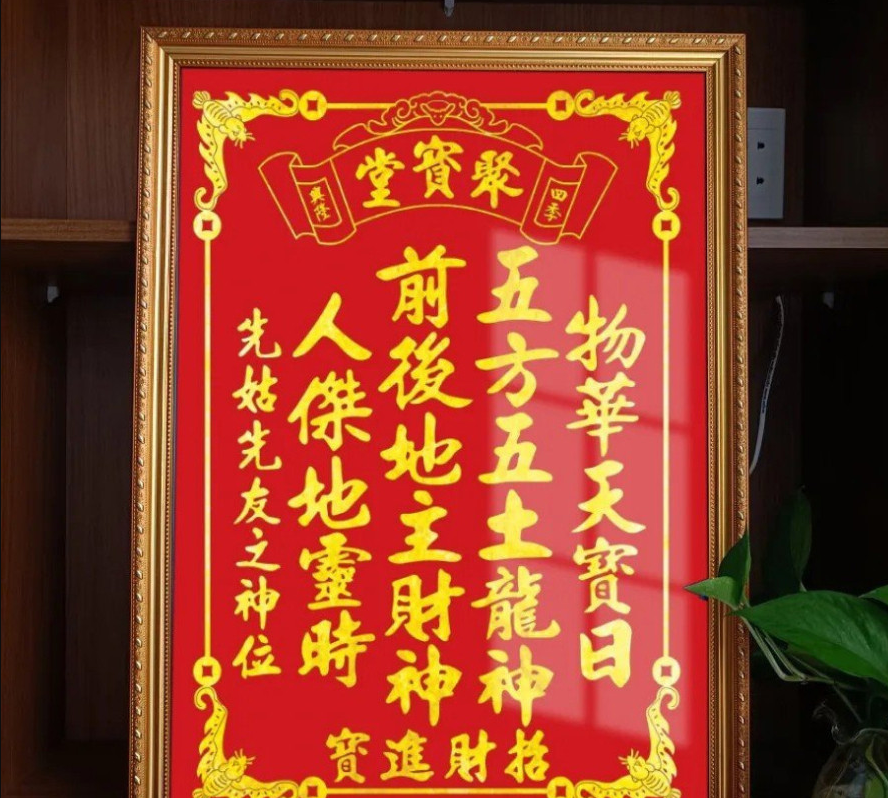 聚寳堂
四季
興隆
物華天寳日
五方五土龍神
前後地主財神
人傑地靈時
先姑先友之神位
招財進寳